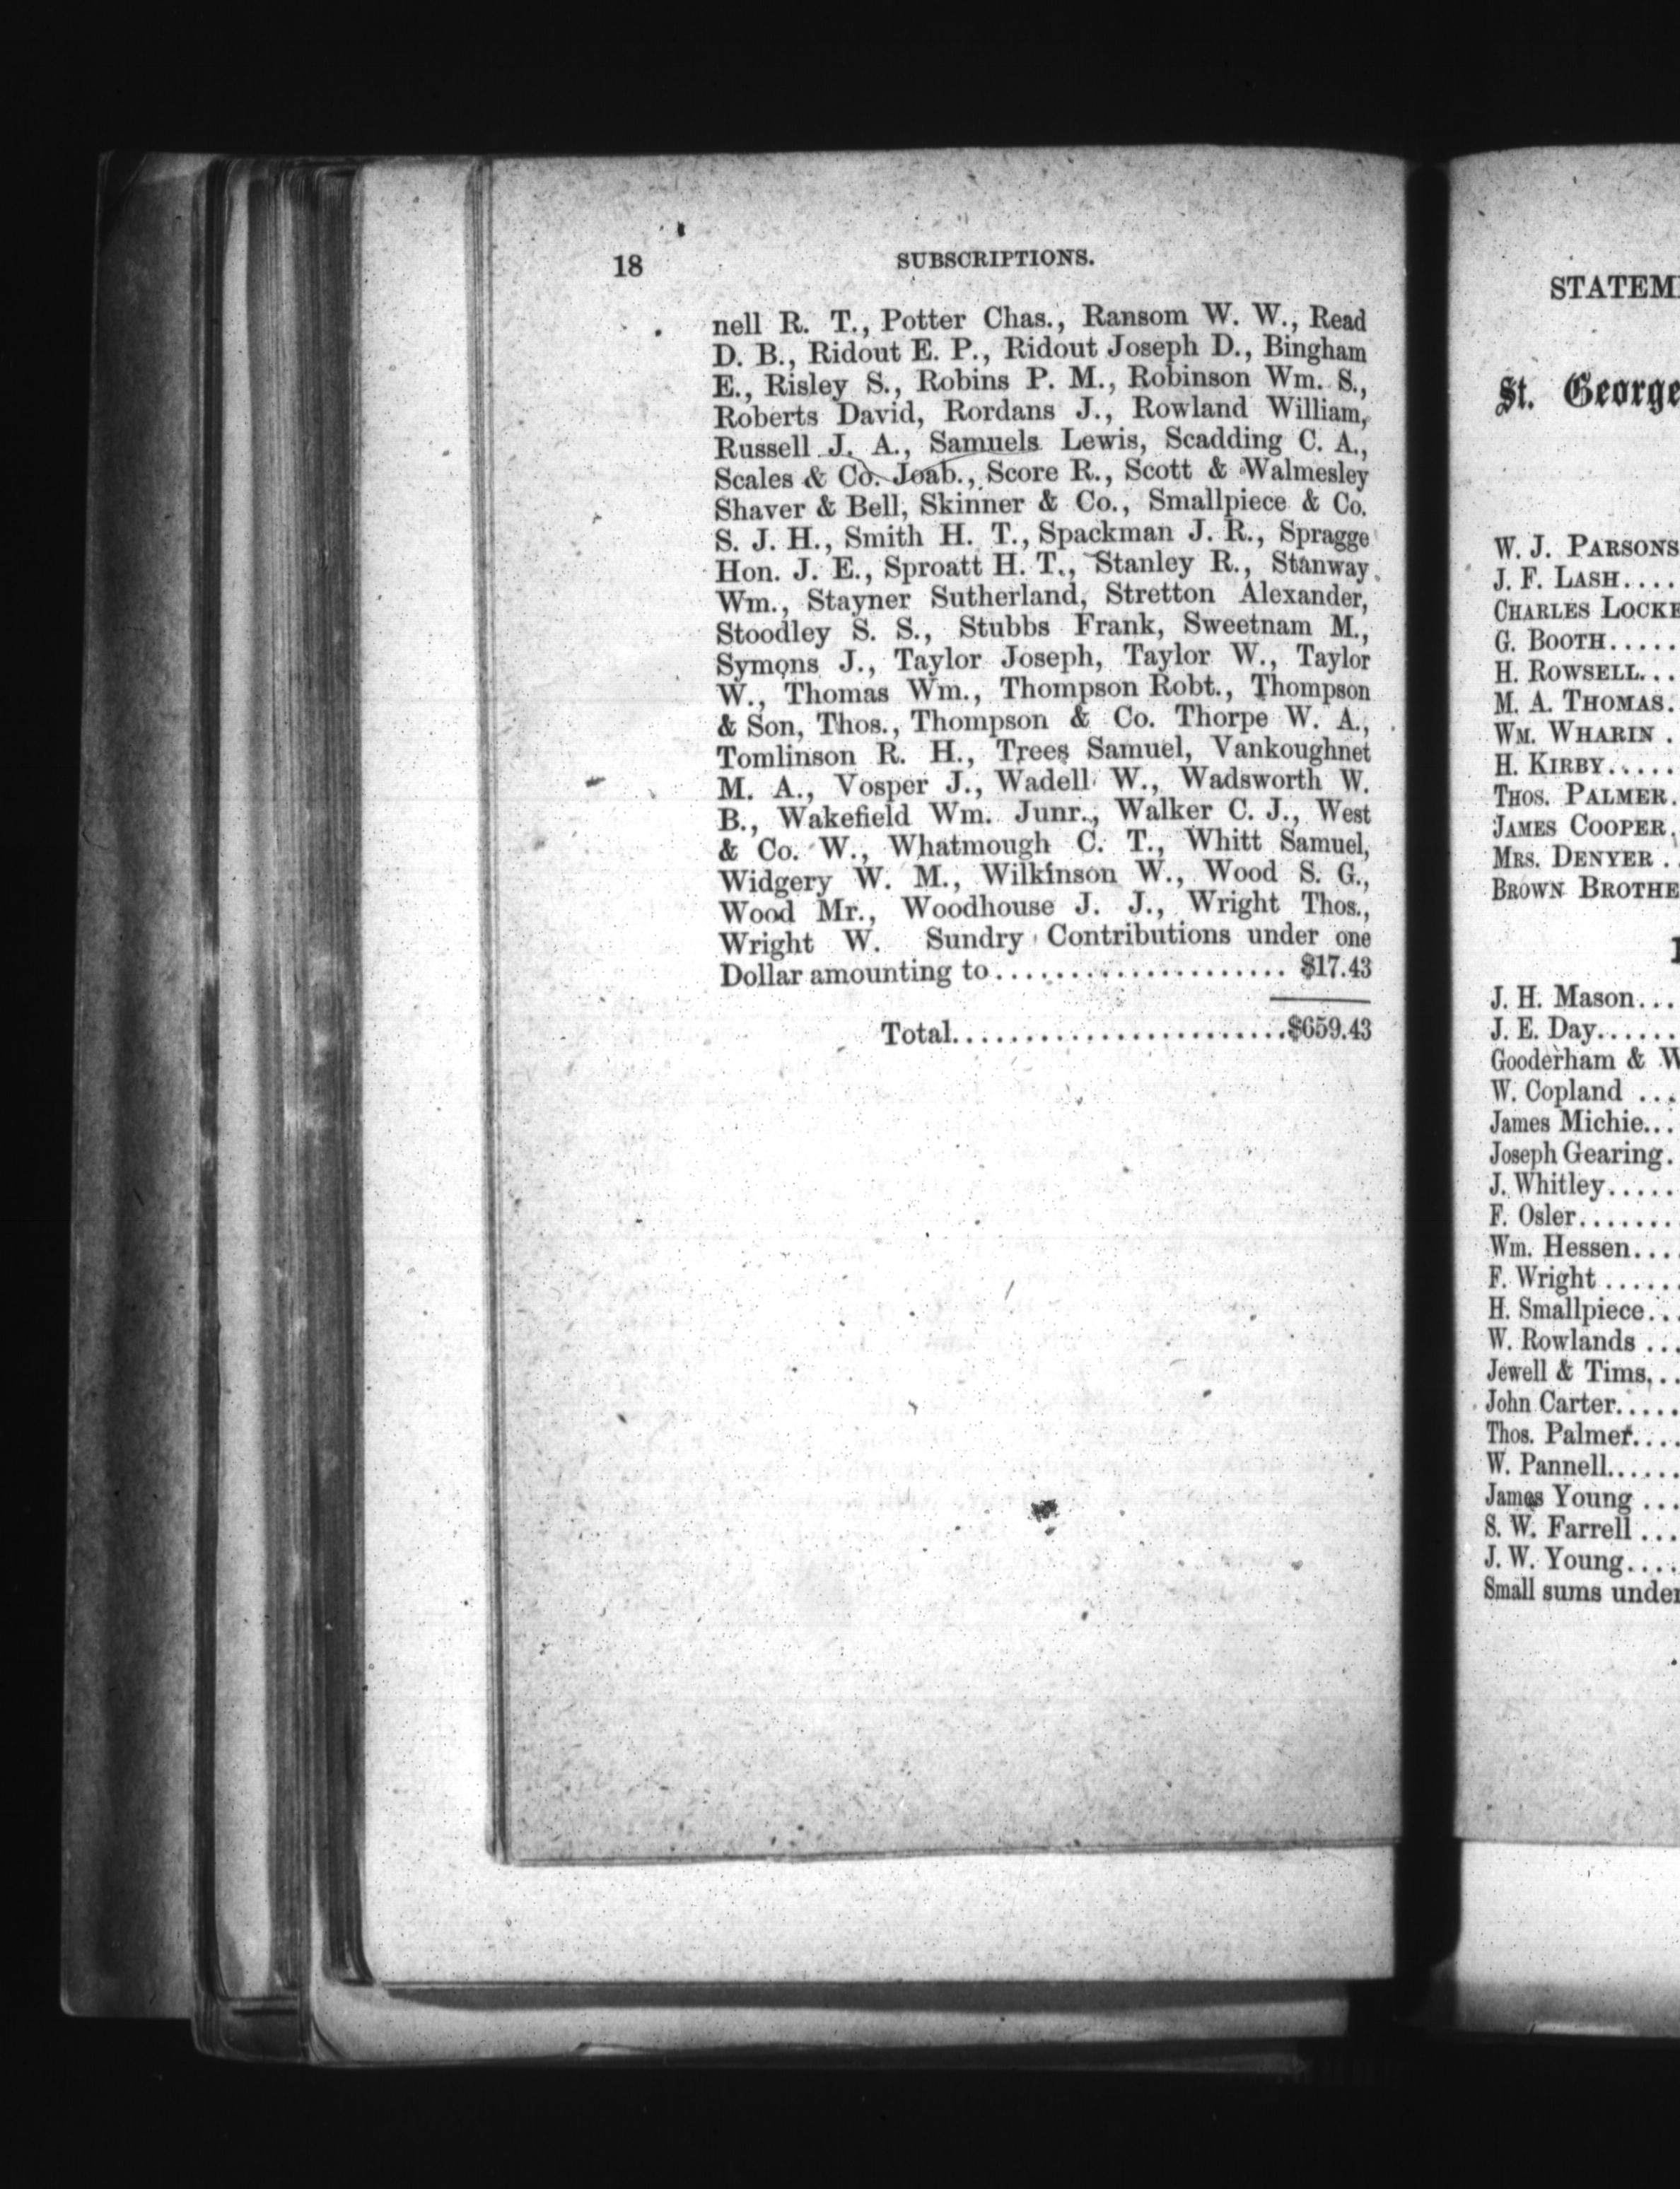 18 SUBSCRIPTIONS.
nell R. T., Potter Chas., Ransom W. W., Read
D. B., Ridout E. P., Ridout Joseph D., Bingham
E., Risley S., Robins P. M., Robinson Wm. S.,
Roberts David, Rordans J., Rowland William,
Russell J. A., Samuels Lewis, Scadding C. A.,
Scales & Co. Joab., Score R., Scott & Walmesley
Shaver & Bell, Skinner & Co., Smallpiece & Co.
S. J. H., Smith H. T., Spackman J. R., Spragge
Hon. J. E., Sproatt H. T., Stanley R., Stanway
Wm., Stayner Sutherland, Stretton Alexander,
Stoodley S. S., Stubbs Frank, Sweetnam M.,
Symons J., Taylor Joseph, Taylor W., Taylor
W., Thomas Wm., Thompson Robt., Thompson
& Son, Thos., Thompson & Co. Thorpe W. A.,
Tomlinson R. H., Trees Samuel, Vankoughnet
M. A., Vosper J., Wadell W., Wadsworth W.
B., Wakefield Wm. Junr., Walker C. J., West
& Co. W., Whatmough C. T., Whitt Samuel,
Widgery W. M., Wilkinson W., Wood S. G.,
Wood Mr., Woodhouse J. J., Wright Thos.,
Wright W. Sundry Contributions under one
Dollar amounting to..................... $17.43
Total........................$659.43
STATEM
St. George
W. J. PARSONS
J. F. LASH....
CHARLES LOCKE
G. BOOTH.....
H. ROWSELL...
M. A. THOMAS.
WM. WHARIN .
H. KIRBY.....
THOS. PALMER.
JAMES COOPER.
MRS. DENYER ..
BROWN BROTHE
J. H. Mason...
J. E. Day......
Gooderham & W
W. Copland ...
James Michie...
Joseph Gearing.
J. Whitley.....
F. Osler.......
Wm. Hessen...
F. Wright .....
H. Smallpiece...
W. Rowlands ...
Jewell & Tims...
John Carter.....
Thos. Palmer....
W. Pannell......
James Young ...
S. W. Farrell ...
J. W. Young....
Small sums under